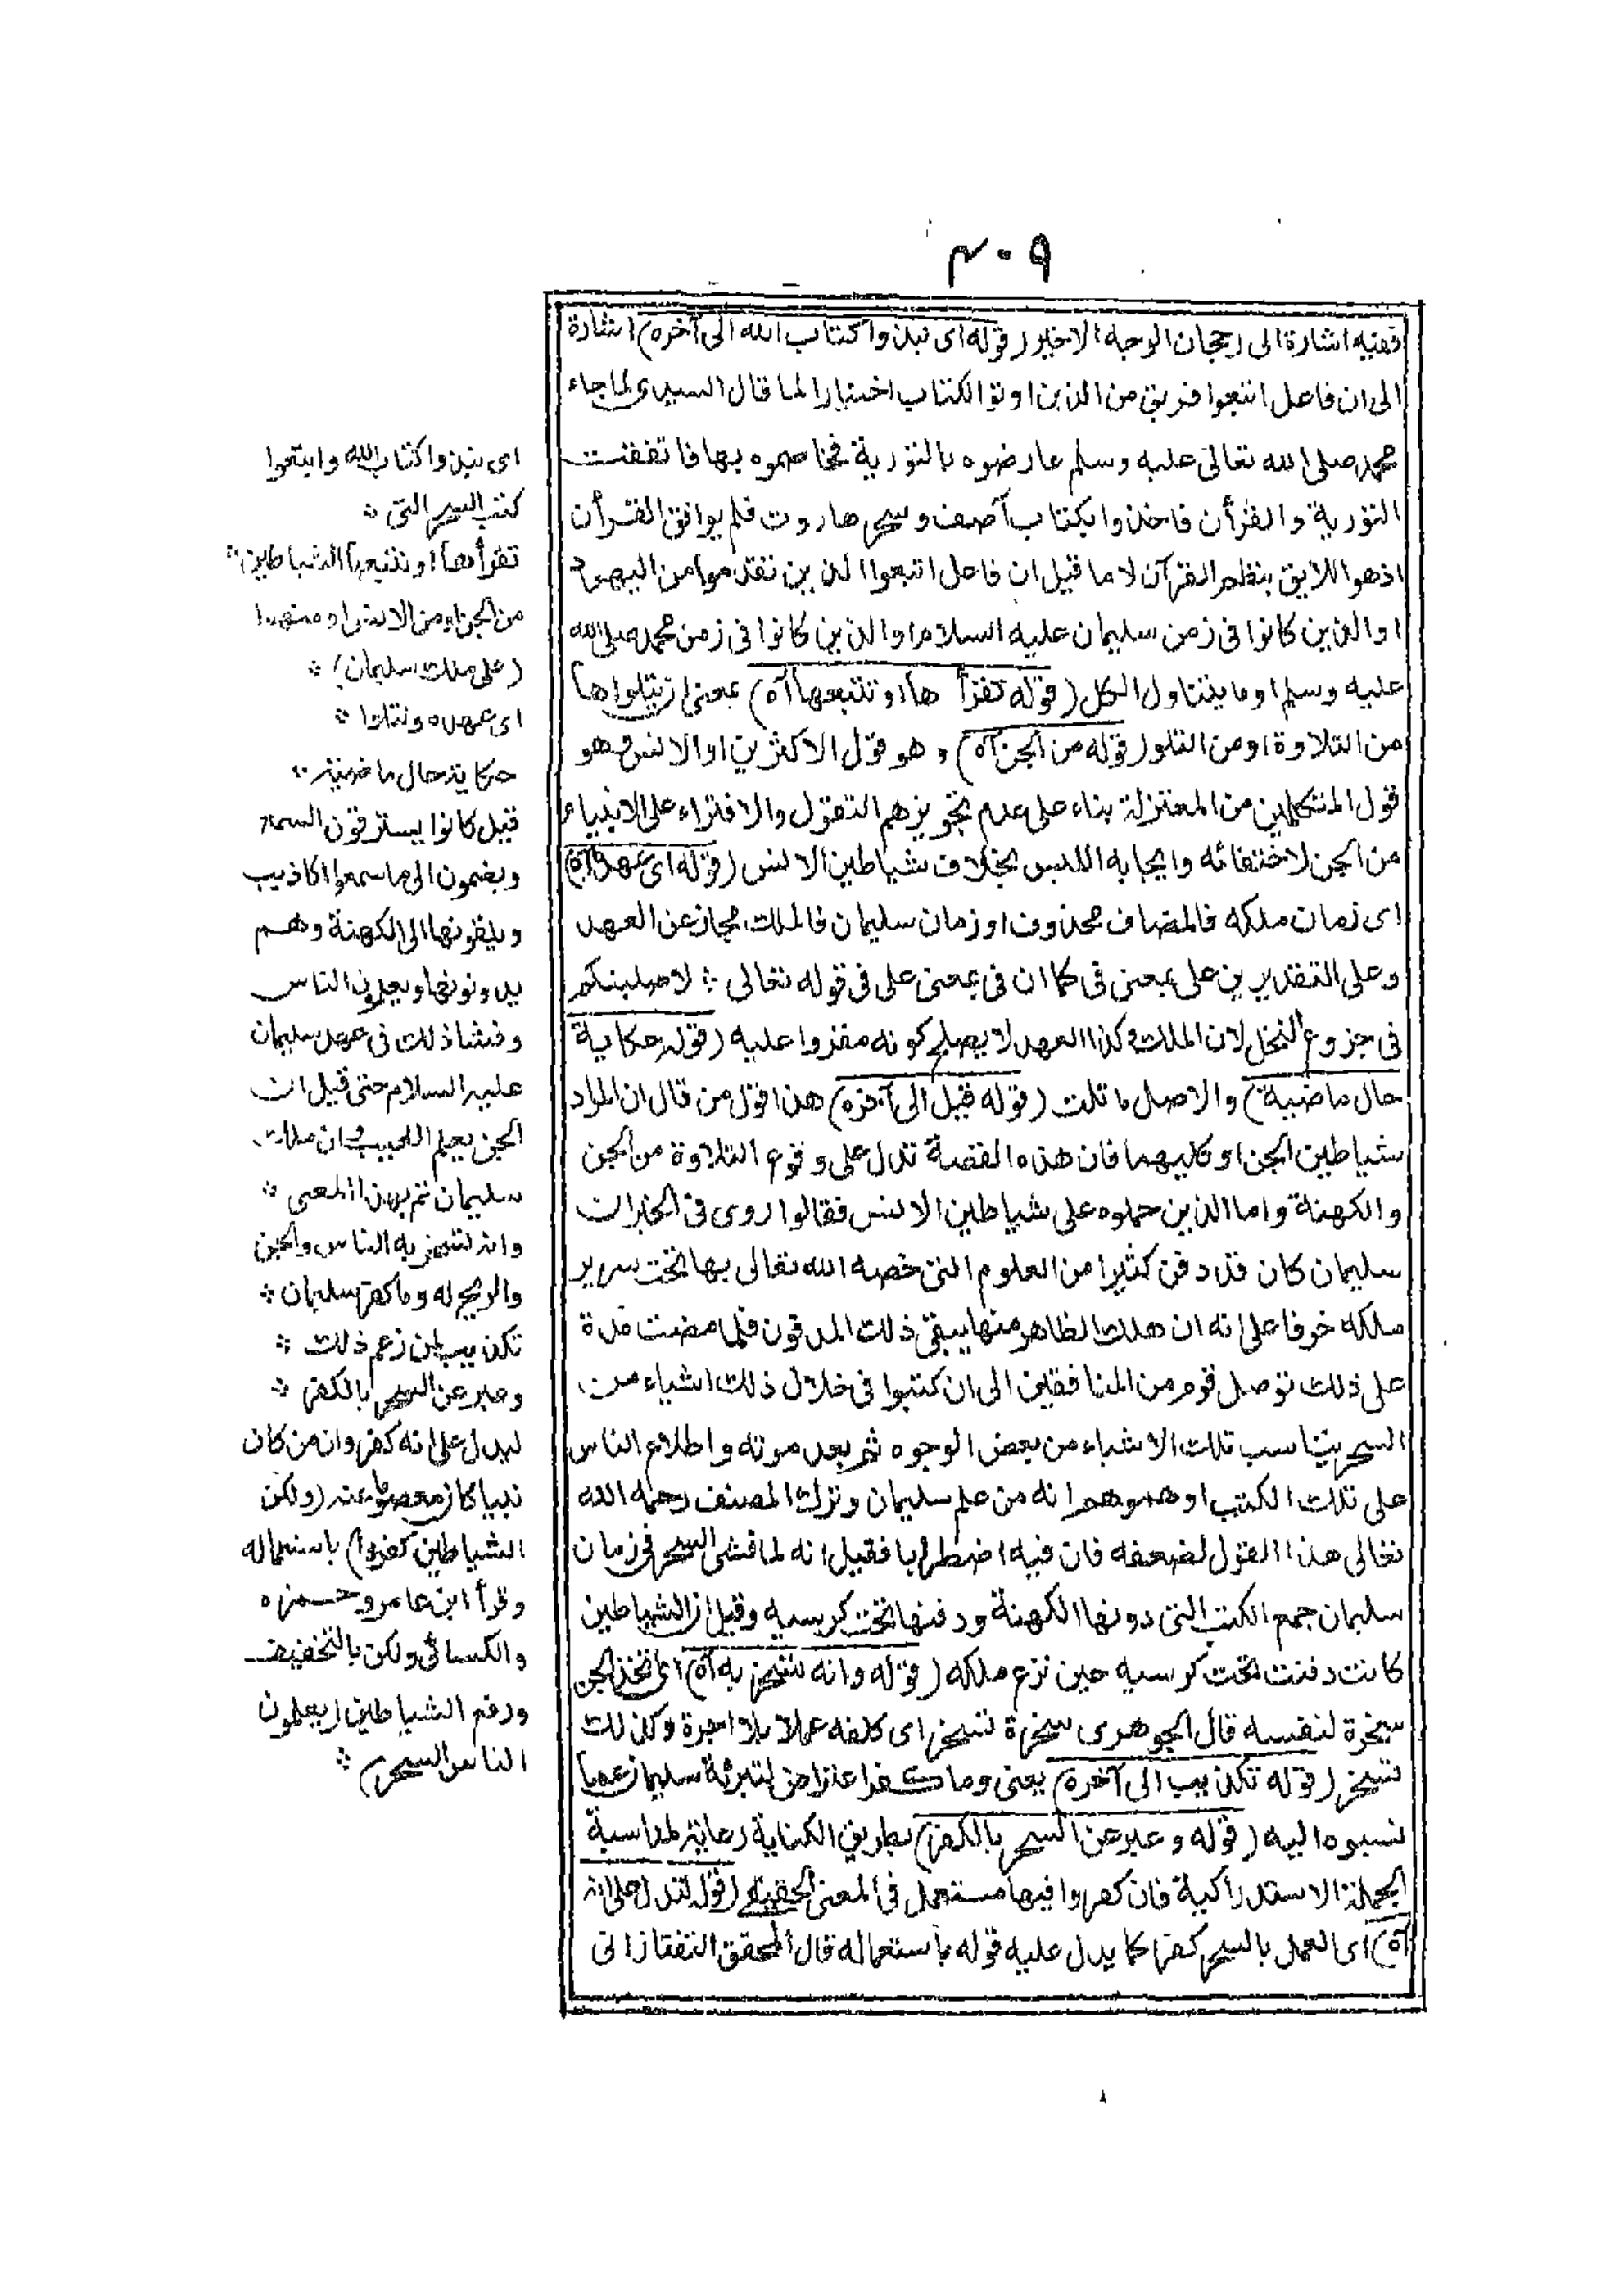 ٣٠٩
ففيه اشارة الى رجحان الوجه الاخير (قوله اى نبذوا كتاب الله الى آخره) اشارة
الى ان فاعل اتبعوا فريق من الذين اوتوا الكتاب اختيارا لما قال السدى لما جاء
محمد صلى الله تعالى عليه وسلم عارضوه بالتورية فخاصموه بها فاتفقت
التورية والقرأن فاخذوا بكتاب آصف وسحر هاروت فلم يوافق القرأن
اذ هو اللايق بنظم القرآن لا ما قيل ان فاعل اتبعوا الذين تقدموا من اليهود
او الذين كانوا فى زمن سليمان عليه السلام او الذين كانوا فى زمن محمد صلى الله
عليه وسلم او ما يتناول الكل (قوله تقرأها او تتبعها آه) بمعنى ان تتلوا ها
من التلاوة او من التلو (قوله من الجن آه) وهو قول الاكثرين او الانس وهو
قول المتكلمين من المعتزلة بناء على عدم تجويزهم التقول والافتراء على الانبياء
من الجن لاختفائه وايجابه اللبس بخلاف شياطين الانس (قوله اى عهده آه)
اى زمان ملكه فالمضاف محذوف او زمان سليمان فالملك مجاز عن العهد
وعلى التقديرين على بمعنى فى كما ان فى بمعنى على فى قوله تعالى ÷ لاصلبنكم
فى جزوع النخل لان الملك وكذا العهد لا يصلح كونه مقروا عليه (قوله حكاية
حال ماضية) والاصل ما تلت (قوله قيل الى آخره) هذا قول من قال ان المراد
شياطين الجن او كليهما فان هذه القصة تدل على وقوع التلاوة من الجن
والكهنة واما الذين حملوه على شياطين الانس فقالوا روى فى الخبر ان
سليمان كان قد دفن كثيرا من العلوم التى خصه الله تعالى بها تحت سرير
ملكه خوفا على انه ان هلك الظاهر منها يبقى ذلك المدفون فلما مضت مدة
على ذلك توصل قوم من المنافقين الى ان كتبوا فى خلال ذلك اشياء من
السحر يتناسب تلك الاشياء من بعض الوجوه ثم بعد موته واطلاع الناس
على تلك الكتب اوهموهم انه من علم سليمان وترك المصنف رحمه الله
تعالى هذا القول لضعفه فان فيه اضطرابا فقيل انه لما فشى السحر فى زمان
سليمان جمع الكتب التى دونها الكهنة ودفنها تحت كرسيه وقيل ان الشياطين
كانت دفنت تحت كرسيه حين نزع ملكه (قوله وانه تسخر به آه) اى تخذ الجن
سخرة لنفسه قال الجوهرى سخرة تسخر اى كلفه عملا بلا اجرة وكذلك
تسخر (قوله تكذيب الى آخره) يعنى وما كفر اعتراض لتبرئة سليمان عما
نسبوه اليه (قوله وعبر عن السحر بالكفر) بطريق الكناية رعاية لمناسبة
الجملة الاستدراكية فان كفروا فيها مستعمل فى المعنى الحقيقى (قوله لتدل على انه
آه) اى العمل بالسحر كفر كما يدل عليه قوله باستعماله قال المحقق التفتازانى
اى نبذوا كتاب الله واتبعوا
كتب السحر التى ÷
تقرأها او تتبعها الشياطين ÷
من الجن او من الانس او منهما
(على ملك سليمان) ÷
اى عهده وتتلوا ÷
حكاية حال ماضية ÷
قيل كانوا يسترقون السمع
ويضمون الى ما سمعوا اكاذيب
ويلقونها الى الكهنة وهم
يدونونها ويعلمون الناس
وفشا ذلك فى عهد سليمان
عليه السلام حتى قيل ان
الجن يعلم الغيب وان ملك
سليمان تم بهذا المعى ÷
وانه تسخر به الناس والجن
والريح له وما كفر سليمان ÷
تكذيب لمن زعم ذلك ÷
وعبر عن السحر بالكفر ÷
ليدل على انه كفر وان من كان
نبيا كان معصوما عنه (ولكن
الشياطين كفروا) باستعماله
وقرأ ابن عامر وحمزه
والكسائى ولكن بالتخفيف
ورفع الشياطين (يعلمون
الناس السحر) ÷